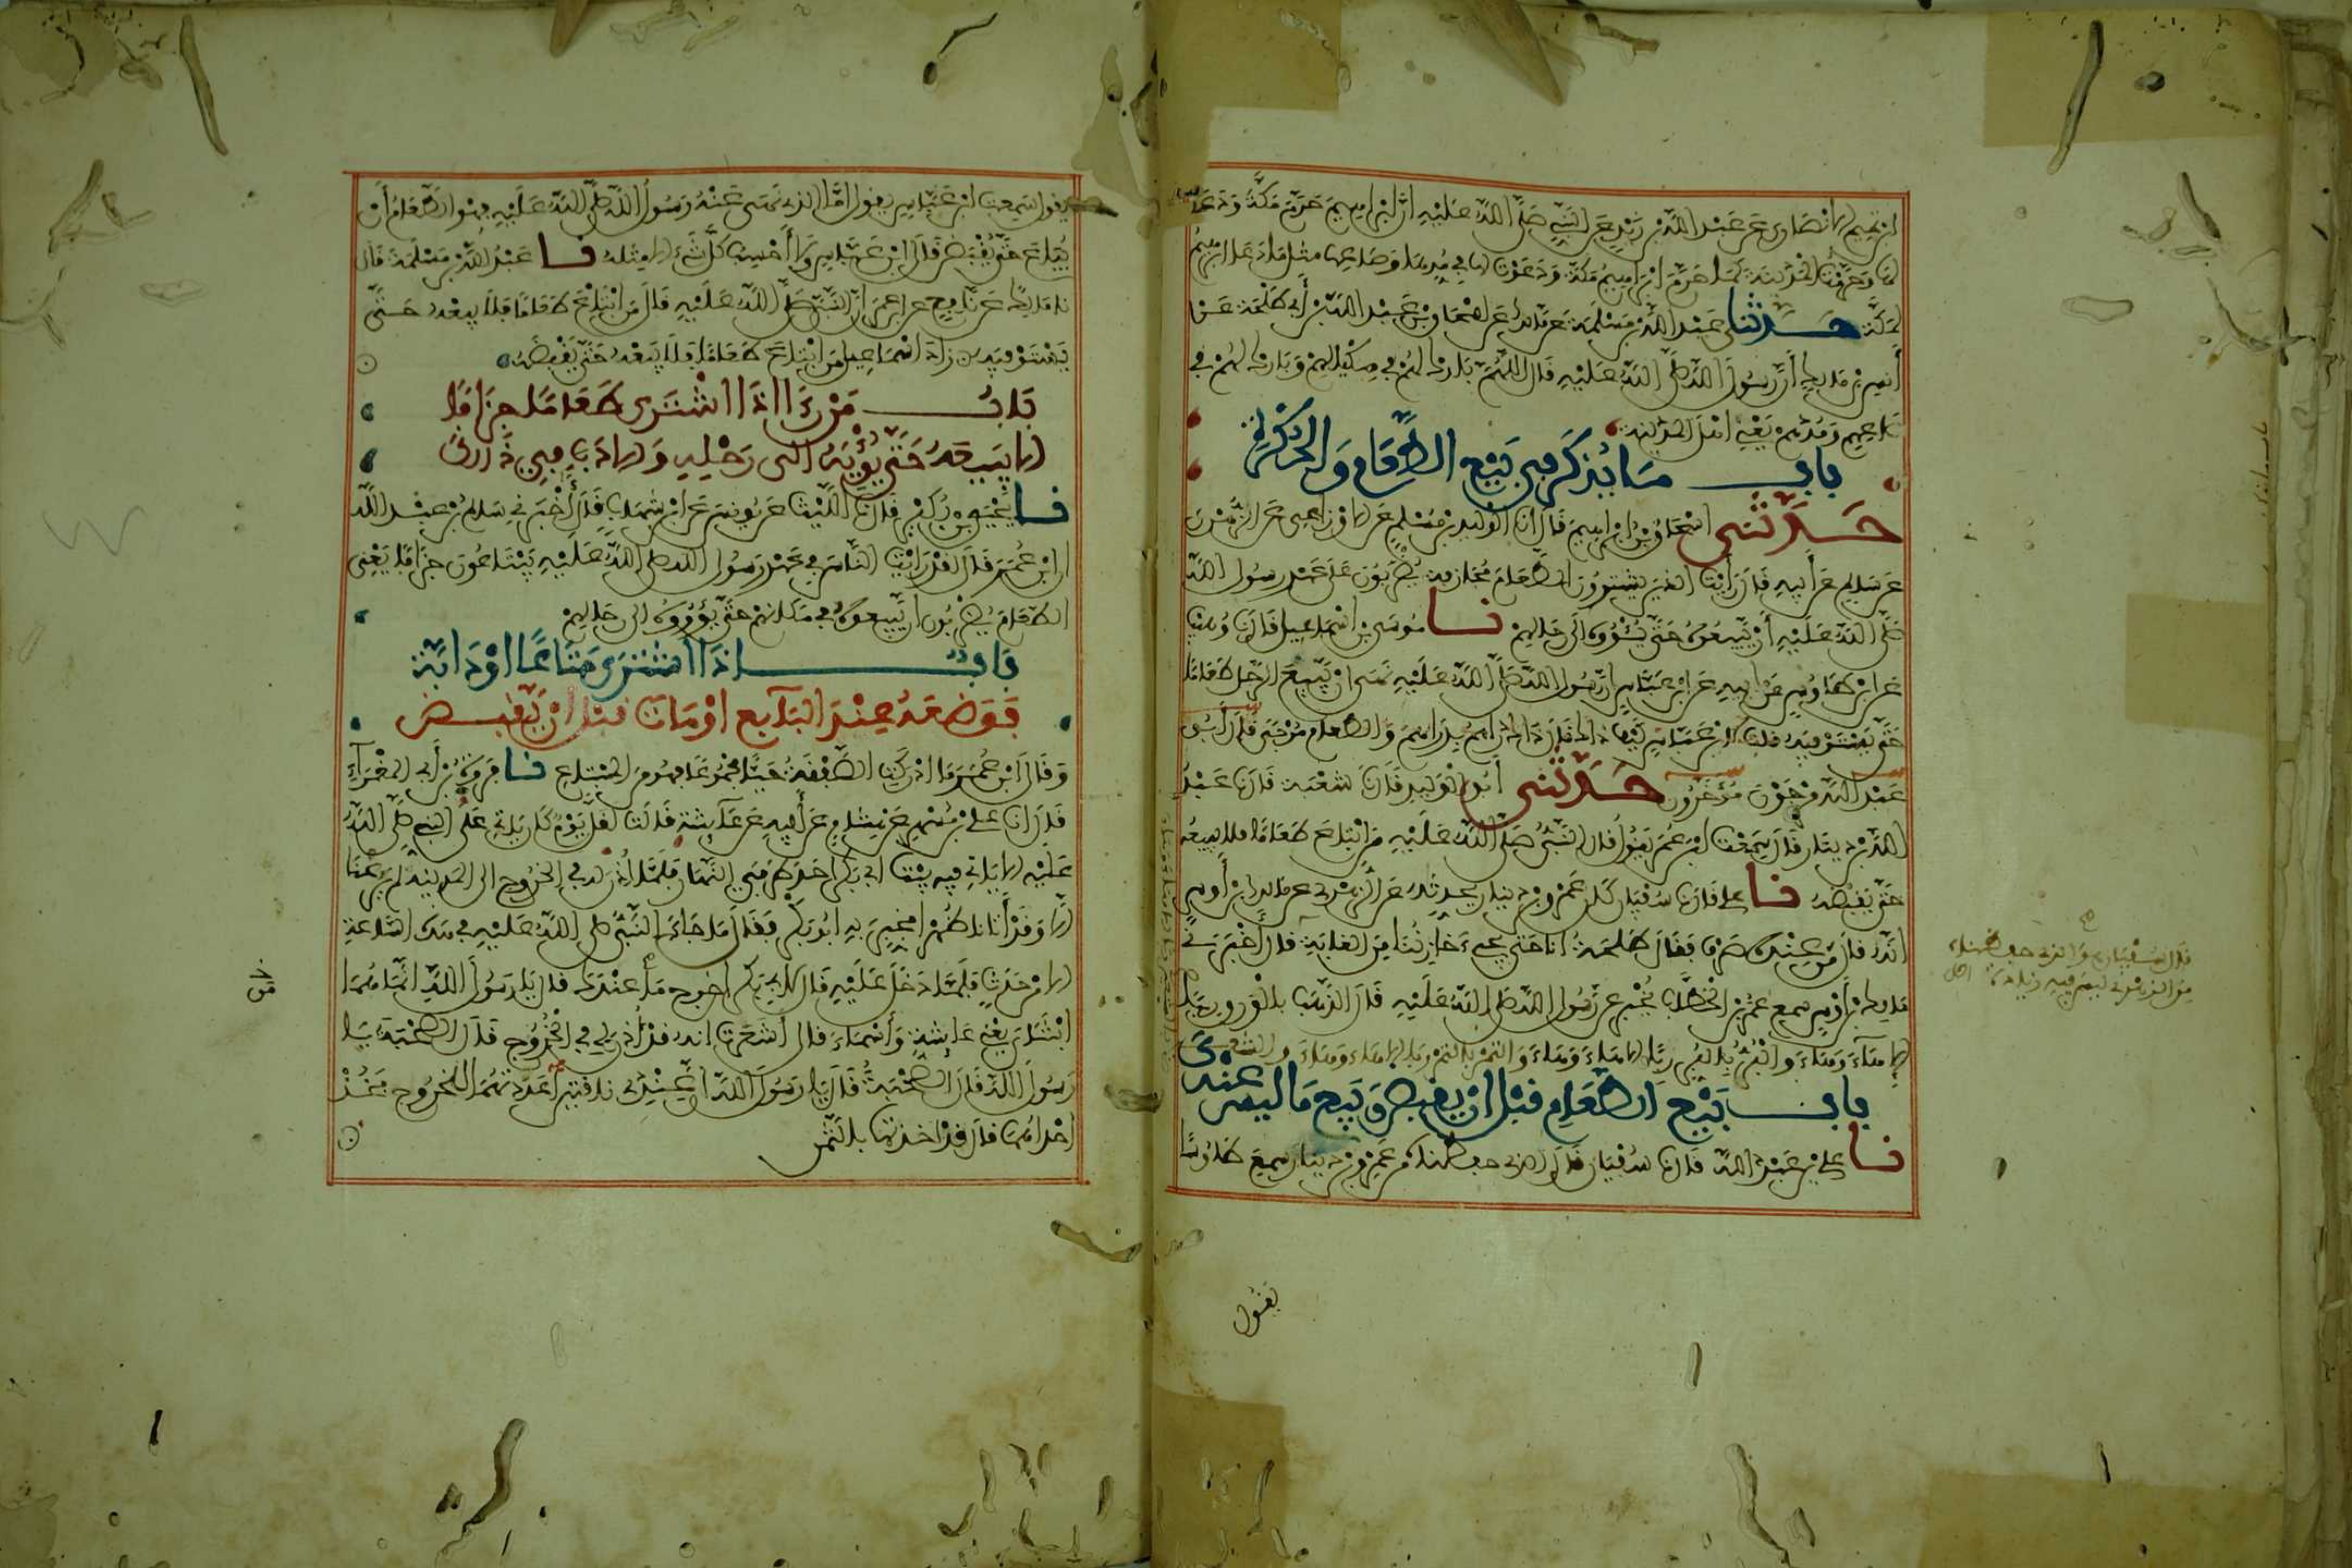 ابن تميم الانصاري عن عبد الله بن زيد عن النبي صلى الله عليه ان ابراهيم حرم مكة ودعا
لها وحرمت المدينة كما حرم ابراهيم مكة ودعوت لها في مدها وصاعها مثل ما دعا ابراهيم
لمكة حدثنا عبد الله بن مسلمة عن مالك عن اسحاق بن عبد الله بن أبي طلحة عن
أنس بن مالك أن رسول الله صلى الله عليه قال اللهم بارك لهم في مكيالهم وبارك لهم في
صاعهم ومدهم يعني اهل المدينة
باب ما يذكر في بيع الطعام والحكرة
حدثني اسحاق بن ابراهيم قال انا الوليد بن مسلم عن الاوزاعي عن الزهري
عن سالم عن أبيه قال رأيت الذين يشترون الطعام مجازفة يضربون على عهد رسول الله
صلى الله عليه أن يبيعوه حتى يئووه الى رحالهم نا موسى بن اسماعيل قال نا وهيب
عن ابن طاوس عن ابيه عن ابن عباس ان رسول الله صلى الله عليه نهى ان يبيع الرجل طعاما
حتى يستوفيه قلت لابن عباس كيف ذاك قال ذاك دراهم بدراهم والطعام مرجى قال أبو
عبد الله مرجون مؤخرون حدثني أبو الوليد قال نا شعبة قال نا عبد
الله بن دينار قال سمعت ابن عمر يقول قال النبي صلى الله عليه من ابتاع طعاما فلا يبيعه
حتى يقبضه نا علي قال نا سفيان كان عمرو بن دينار يحدثه عن الزهري عن مالك بن أوس
انه قال من عنده صرف فقال طلحة انا حتى يجيء خازننا من الغابة قال أخبرني
مالك بن أوس سمع عمر بن الخطاب يخبر عن رسول الله صلى الله عليه قال الذهب بالورق ربا
الا هاء وهاء والبر بالبر ربا الا هاء وهاء والتمر بالتمر ربا الا هاء وهاء والشعير
باب بيع الطعام قبل ان يقبض وبيع ما ليس عندك
نا علي بن عبد الله قال نا سفيان قال الذي حفظناه من عمرو بن دينار سمع طاوسا
قال سفيان والذي حفظناه
من الزهري ليس فيه زيادة
يقول
يقول سمعت ابن عباس يقول اما الذي نهى عنه رسول الله صلى الله عليه فهو الطعام أن
يباع حتى يقبض قال ابن عباس ولا أحسب كل شيء الا مثله نا عبد الله بن مسلمة قال
نا مالك عن نافع عن ابن عمر ان النبي صلى الله عليه قال من ابتاع طعاما فلا يبعه حتى
يستوفيه زاد اسماعيل من ابتاع طعاما فلا يبعه حتى يقبضه
باب من رءا اذا اشترى طعاما جزافا
الا يبيعه حتى يؤيه الى رحله والادب في ذلك
نا يحيى بن بكير قال نا الليث عن يونس عن ابن شهاب قال أخبرني سالم بن عبد الله
ان ابن عمر قال لقد رايت الناس في عهد رسول الله صلى الله عليه يبتاعون جزافا يعني
الطعام يضربون ان يبيعوه في مكانهم حتى يؤووه الى رحالهم
باب اذا اشترى متاعا او دابة
فوضعه عند البائع او مات قبل ان يقبض
وقال ابن عمر ما ادركت الصفقة حيا مجموعا فهو من المبتاع نا فروة بن أبي المغراء
قال نا علي بن مسهر عن هشام عن أبيه عن عائشة قالت لقل يوم كان ياتي على النبي صلى الله
عليه الا ياتي فيه بيت ابي بكر احد طرفي النهار فلما أذن له في الخروج الى المدينة لم يرعنا
الا وقد أتانا ظهرا فخبر به ابو بكر فقال ما جاء النبي صلى الله عليه في هذه الساعة
الا من حدث فلما دخل عليه قال لابي بكر اخرج ما عندك قال يا رسول الله انما هما
ابنتاي يعني عائشة وأسماء قال أشعرت انه قد أذن لي في الخروج قال الصحبة يا
رسول الله قال الصحبة قال يا رسول الله ان عندي ناقتين أعددتهما للخروج فخذ
احداهما قال قد اخذتها بالثمن